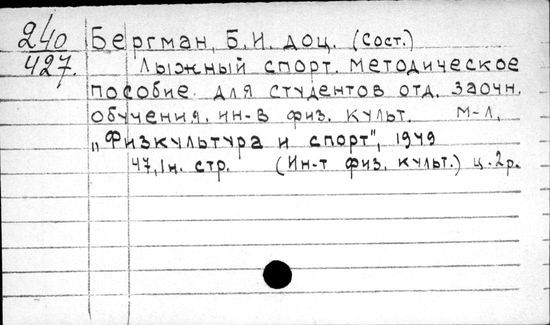 240 Бергман, Б.И. доц. (Сост.)
427. Лыжный спорт. Методическое
пособие для студентов отд. заочн.
обучения. ин-в физ. культ. М-Л,
„Физкультура и спорт", 1949
47, 1 н. стр. (Ин-т физ. культ.) ц. 2р.